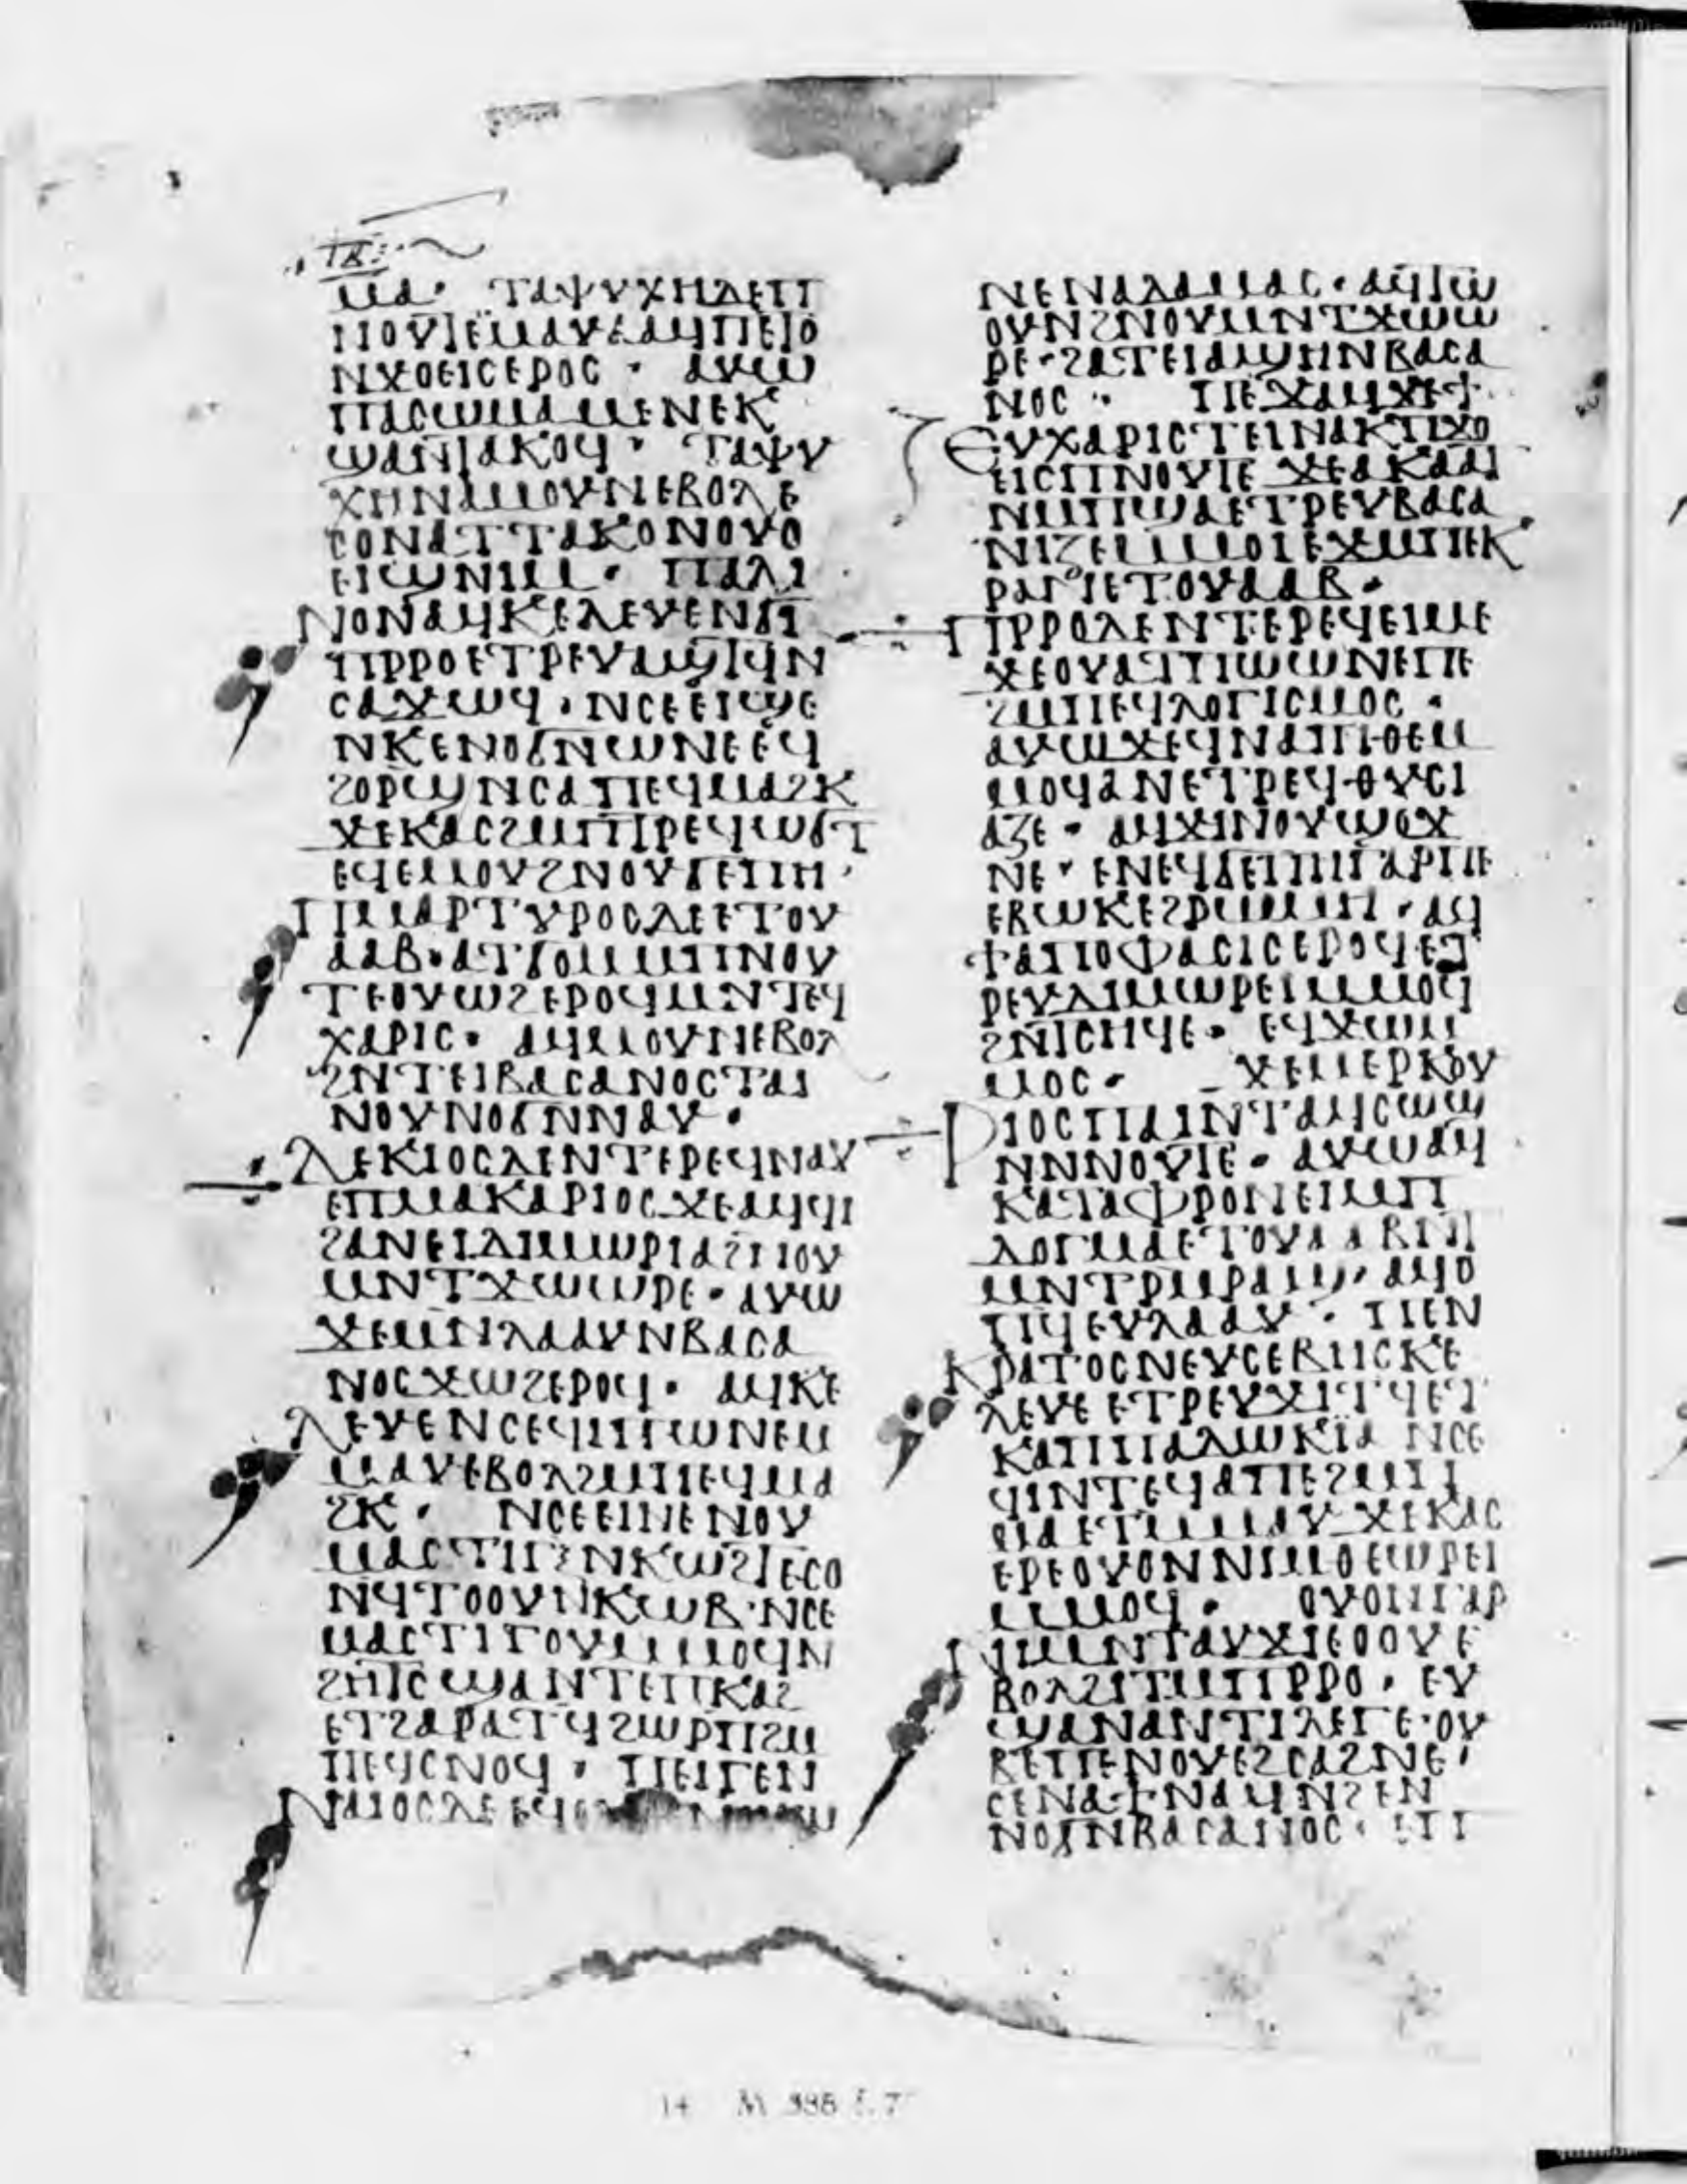 ⲓ̅ⲃ̅
ⲙⲁ· ⲧⲁⲯⲩⲭⲏⲇⲉⲡ
ⲛⲟⲩⲧⲉⲙⲁⲩⲁⲁϥⲡⲉⲧⲟ
ⲛϫⲟⲉⲓⲥⲉⲣⲟⲥ· ⲁⲩⲱ
ⲡⲁⲥⲱⲙⲁⲙⲉⲛⲉⲕ
ϣⲁⲛⲧⲁⲕⲟϥ· ⲧⲁⲯⲩ
ⲭⲏⲛⲁⲙⲟⲩⲛⲉⲃⲟⲗⲉ
ⲥⲟⲛⲁⲧⲧⲁⲕⲟⲛⲟⲩⲟ
ⲉⲓϣⲛⲓⲙ· ⲡⲁⲗⲓ
ⲛⲟⲛⲁϥⲕⲉⲗⲉⲩⲉⲛϭⲓ
ⲡⲣⲣⲟⲉⲧⲣⲉⲩⲁϣⲧϥⲛ
ⲥⲁϫⲱϥ·ⲛⲥⲉⲉⲓϣⲉ
ⲛⲕⲉⲛⲟϭⲛⲱⲛⲉⲉϥ
ϩⲟⲣϣⲛⲥⲁⲡⲉϥⲙⲁϩⲕ
ϫⲉⲕⲁⲥϩⲙⲡⲧⲣⲉϥⲱϭⲧ
ⲉϥⲉⲙⲟⲩϩⲛⲟⲩϭⲉⲡⲏ·
ⲡⲙⲁⲣⲧⲩⲣⲟⲥⲇⲉⲉⲧⲟⲩ
ⲁⲁⲃ·ⲁⲧϭⲟⲙⲙⲡⲛⲟⲩ
ⲧⲉⲟⲩⲱϩⲉⲣⲟϥⲙⲛⲧⲉϥ
ⲭⲁⲣⲓⲥ· ⲁϥⲙⲟⲩⲛⲉⲃⲟⲗ
ϩⲛⲧⲉⲓⲃⲁⲥⲁⲛⲟⲥⲧⲁⲓ
ⲛⲟⲩⲛⲟϭⲛⲛⲁⲩ·
ⲇⲉⲕⲓⲟⲥⲇⲉⲛⲧⲉⲣⲉϥⲛⲁⲩ
ⲉⲡⲙⲁⲕⲁⲣⲓⲟⲥϫⲉⲁϥϥⲓ
ϩⲁⲛⲉⲓⲇⲓⲙⲱⲣⲓⲁϩⲛⲟⲩ
ⲙⲛⲧϫⲱⲱⲣⲉ·ⲁⲩⲱ
ϫⲉⲙⲛⲗⲁⲁⲩⲛⲃⲁⲥⲁ
ⲛⲟⲥϫⲱϩⲉⲣⲟϥ· ⲁϥⲕⲉ
ⲗⲉⲩⲉⲛⲥⲉϥⲓⲡⲱⲛⲉⲙ
ⲙⲁⲩⲉⲃⲟⲗϩⲙⲡⲉϥⲙⲁ
ϩⲕ· ⲛⲥⲉⲉⲓⲛⲉⲛⲟⲩ
ⲙⲁⲥⲧⲓⲝⲛⲕⲱϩⲧⲉⲥⲟ
ⲛϥⲧⲟⲟⲩⲛⲕⲱⲃ·ⲛⲥⲉ
ⲙⲁⲥⲧⲓⲅⲟⲩⲙⲙⲟϥⲛ
ϩⲏⲧⲥϣⲁⲛⲧⲉⲡⲕⲁϩ
ⲉⲧϩⲁⲣⲁⲧϥϩⲱⲣⲡϩⲙ
ⲡⲉϥⲥⲛⲟϥ· ⲡⲉⲓⲅⲉⲛ
ⲛⲁⲓⲟⲥⲇⲉⲉϥⲟ
ⲛⲉⲛⲁⲇⲁⲙⲁⲥ·ⲁϥⲧⲱ
ⲟⲩⲛϩⲛⲟⲩⲙⲛⲧϫⲱⲱ
ⲣⲉ·ϩⲁⲧⲉⲓⲁϣⲏⲛⲃⲁⲥⲁ
ⲛⲟⲥ· ⲡⲉϫⲁϥϫⲉϯ
ⲉⲩⲭⲁⲣⲓⲥⲧⲉⲓⲛⲁⲕⲡϫⲟ
ⲉⲓⲥⲡⲛⲟⲩⲧⲉ ϫⲉⲁⲕⲁⲁⲧ
ⲛⲙⲡϣⲁⲉⲧⲣⲉⲩⲃⲁⲥⲁ
ⲛⲓⲍⲉⲙⲙⲟⲓⲉϫⲙⲡⲉⲕ
ⲣⲁⲛⲉⲧⲟⲩⲁⲁⲃ·
ⲡⲣⲣⲟⲇⲉⲛⲧⲉⲣⲉϥⲉⲓⲙⲉ
ϫⲉⲟⲩⲁⲧⲡⲱⲱⲛⲉⲡⲉ
ϩⲙⲡⲉϥⲗⲟⲅⲓⲥⲙⲟⲥ·
ⲁⲩⲱϫⲉϥⲛⲁⲡⲓⲑⲉⲙ
ⲙⲟϥⲁⲛⲉⲧⲣⲉϥⲑⲩⲥⲓ
ⲁⲍⲉ· ⲁϥϫⲓⲛⲟⲩϣⲟϫ
ⲛⲉ· ⲉⲛⲉϥϭⲉⲡⲏⲅⲁⲣⲡⲉ
ⲉⲃⲱⲕⲉϩⲣⲱⲙⲏ·ⲁϥ
ϯⲁⲡⲟⲫⲁⲥⲓⲥⲉⲣⲟϥⲉⲧ
ⲣⲉⲩⲇⲓⲙⲱⲣⲉⲓⲙⲙⲟϥ
ϩⲛⲧⲥⲏϥⲉ· ⲉϥϫⲱⲙ
ⲙⲟⲥ· ϫⲉⲙⲉⲣⲕⲟⲩ
ⲣⲓⲟⲥⲡⲁⲓⲛⲧⲁϥⲥⲱϣ
ⲛⲛⲛⲟⲩⲧⲉ·ⲁⲩⲱⲁϥ
ⲕⲁⲧⲁⲫⲣⲟⲛⲉⲓⲙⲡ
ⲇⲟⲅⲙⲁⲉⲧⲟⲩⲁⲁⲃⲛⲧ
ⲙⲛⲧⲣⲙⲣⲁϣ· ⲁϥⲟ
ⲡϥⲉⲩⲗⲁⲁⲩ· ⲡⲉⲛ
ⲕⲣⲁⲧⲟⲥⲛⲉⲩⲥⲉⲃⲏⲥⲕⲉ
ⲗⲉⲩⲉⲉⲧⲣⲉⲩϫⲓⲧϥⲉⲧ
ⲕⲁⲡⲡⲁⲇⲱⲕⲓⲁ ⲛⲥⲉ
ϥⲓⲛⲧⲉϥⲁⲡⲉϩⲙⲡ
ⲙⲁⲉⲧⲙⲙⲁⲩ ϫⲉⲕⲁⲥ
ⲉⲣⲉⲟⲩⲟⲛⲛⲓⲙⲑⲉⲱⲣⲉⲓ
ⲙⲙⲟϥ· ⲟⲩⲟⲛⲅⲁⲣ
ⲛⲓⲙⲛⲧⲁⲩϫⲓⲉⲟⲟⲩⲉ
ⲃⲟⲗϩⲓⲧⲙⲡⲣⲣⲟ· ⲉⲩ
ϣⲁⲛⲁⲛⲧⲓⲗⲉⲅⲉ·ⲟⲩ
ⲃⲉⲡⲉⲛⲟⲩⲉϩⲥⲁϩⲛⲉ·
ⲥⲉⲛⲁϯⲛⲁϥⲛϩⲉⲛ
ⲛⲟϭⲛⲃⲁⲥⲁⲛⲟⲥ·
14 M